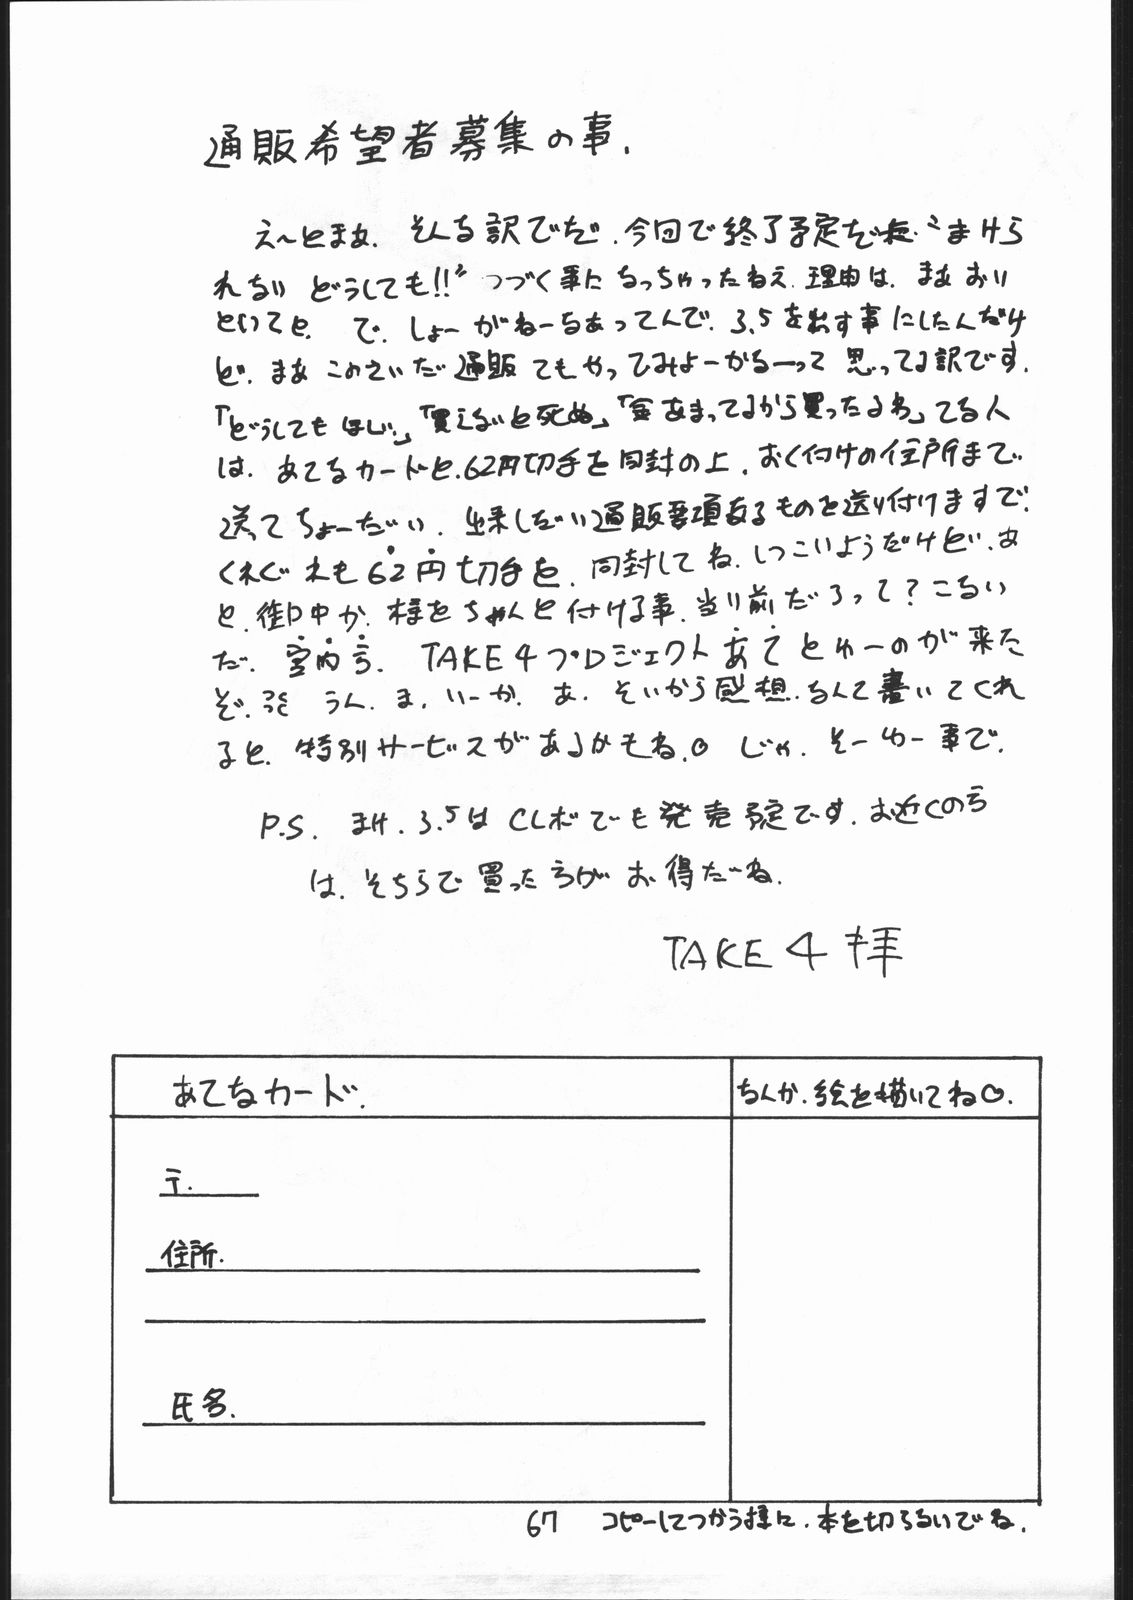 通販希望者募集の事.
え〜とまぁ. そんな訳でだ. 今回で終了予定だった "まけら
れない どうしても!!" つづく事になっちゃったねえ. 理由は. まあ おい
といてと. で. しょーがねーなあってんで. 3.5を出す事にしたんだけ
ど. まあ このさいだ 通販でもやってみよーかなーって 思ってる訳です.
「どうしてもほしい」「買えないと死ぬ」「金あまってるから買ったるわ」てな人
は. あてなカードと. 62円切手を同封の上. おく付けの住所まで
送ってちょーだい. 出来しだい通販要項なるものを送り付けますで.
くれぐれも62円切手を. 同封してね. しつこいようだけど. あ
と. 御中か. 様をちゃんと付ける事. 当り前だろって? こない
だ. 宮内方. TAKE4プロジェクトあてとゆーのが来た
ぞ. うん. ま. いーか. あ. そいから感想. なんて書いてくれ
ると. 特別サービスがあるかもね. じゃ. そーゆー事で.
P.S. まけ. 3.5はCLボでも発売予定です. お近くの方
は. そちらで買った方がお得だーね.
TAKE4拝
あてなカード.
なんか. 絵を描いてね♡.
〒.
住所.
氏名.
67 コピーしてつかう様に. 本を切るないでね.